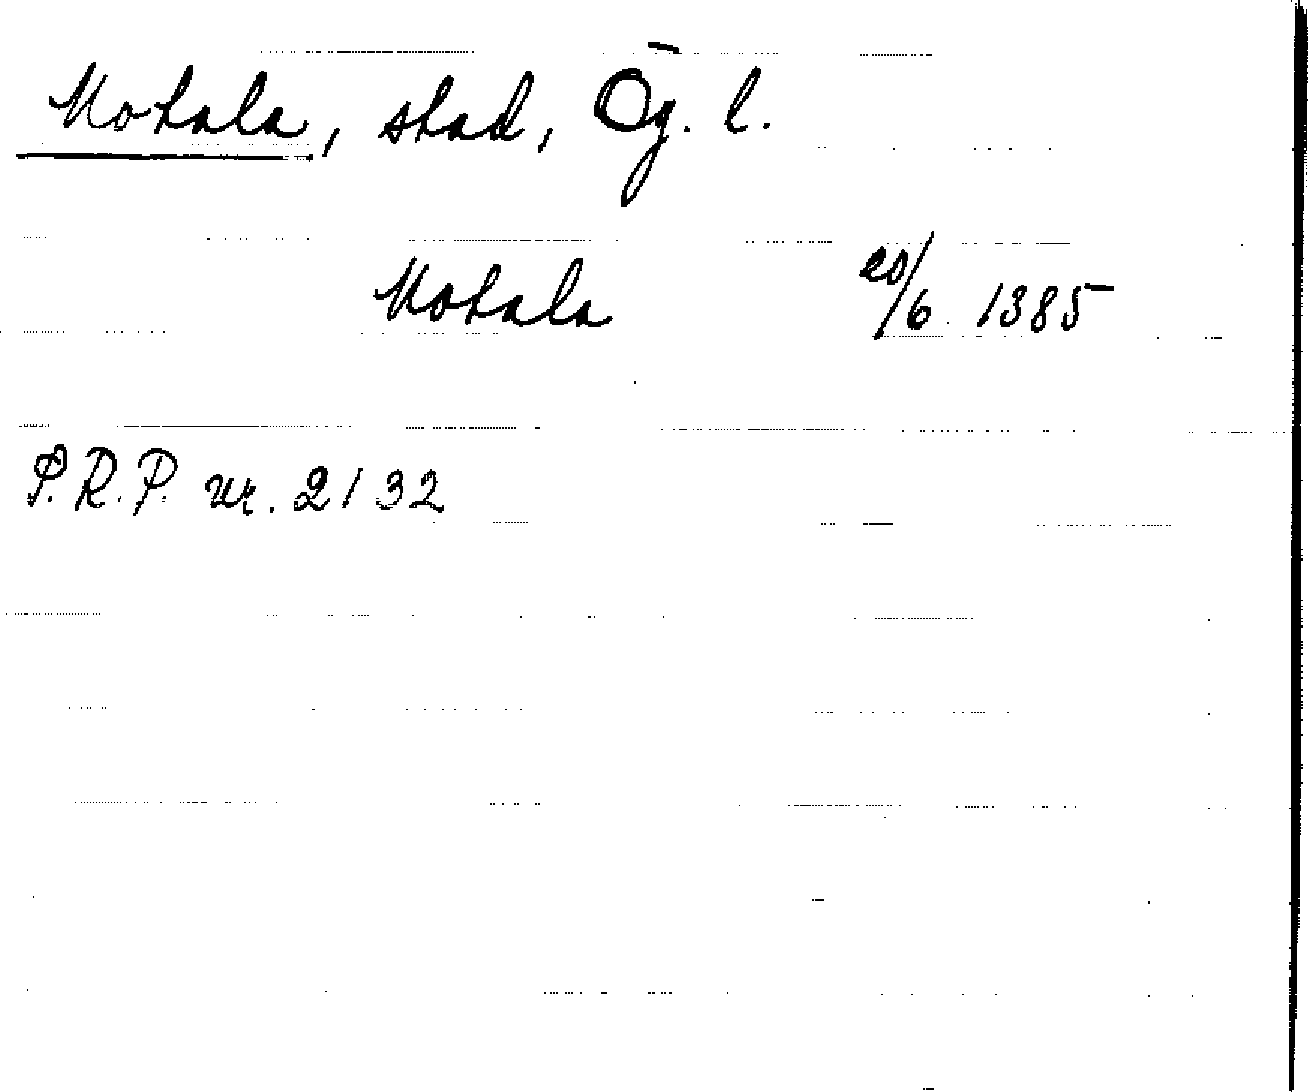 Motala, stad, Ög. l.
Motala 20/6 1385
P.R.P. nr. 2132